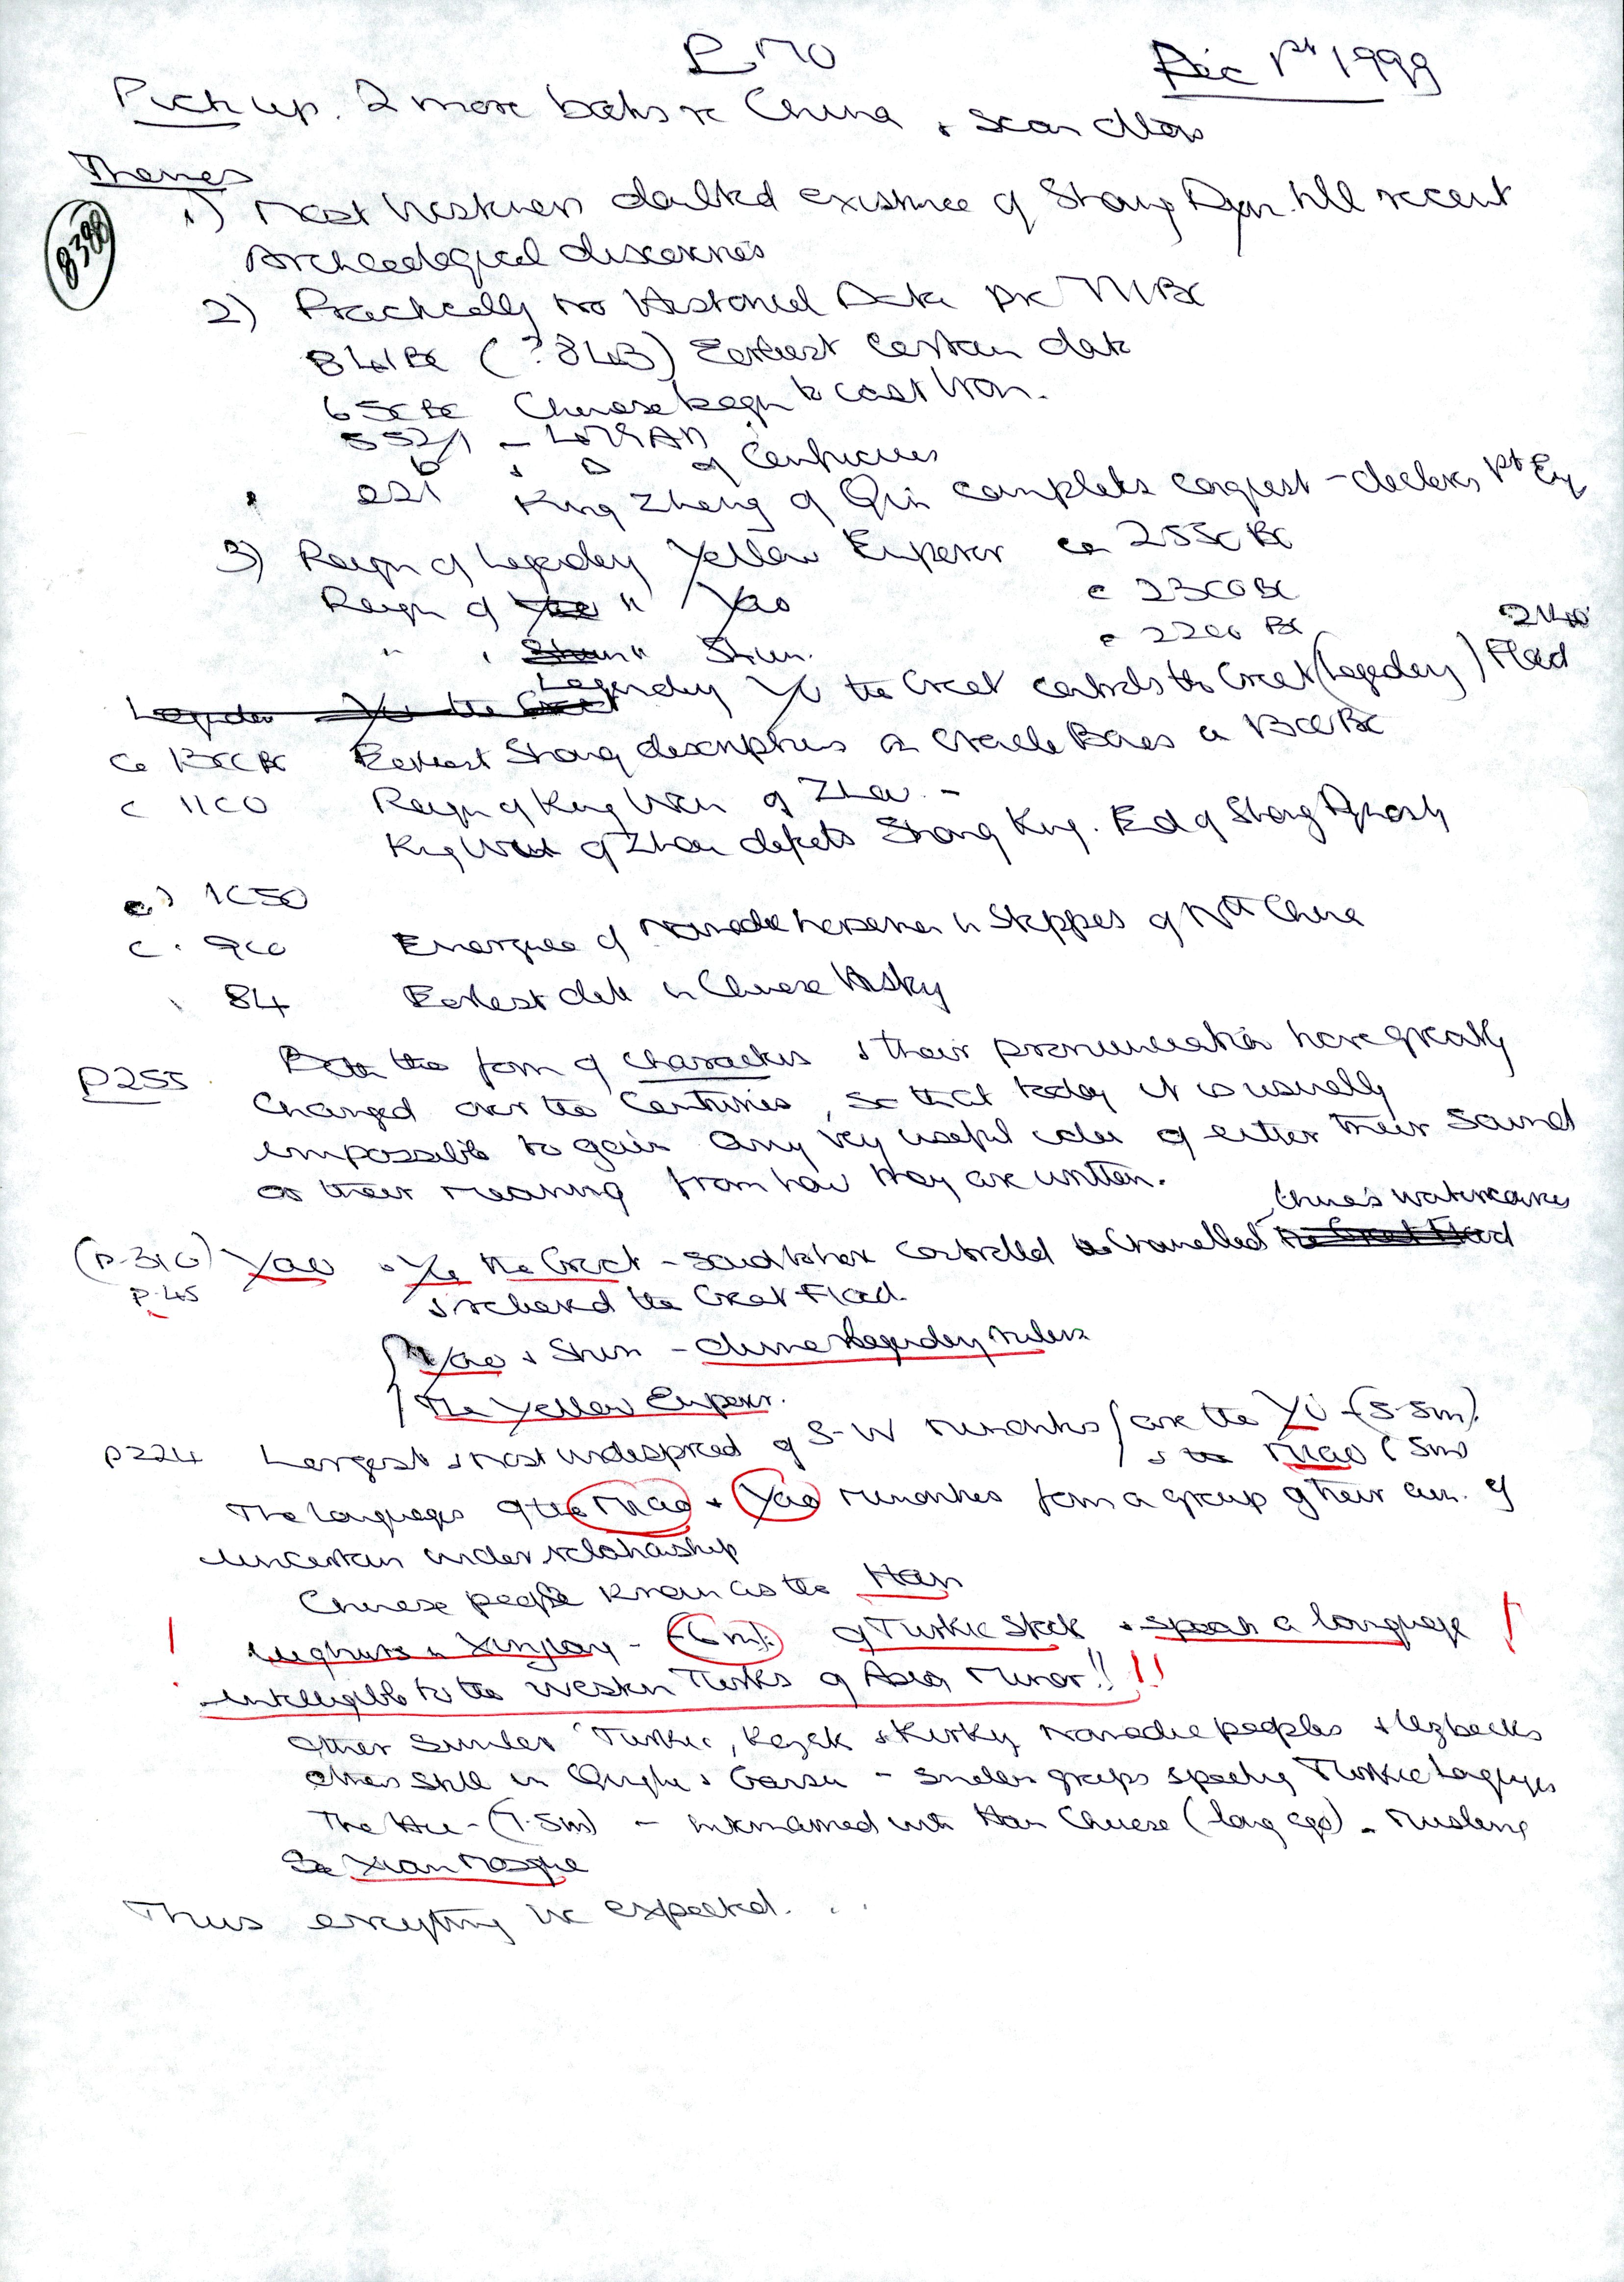 P 170
Dec 1st 1999
Pick up. 2 more books re China + scan
Themes
8388
1) Most Westerners doubted existence of Shang Dyn. till recent
Archeological discoveries
2) Practically no Historical Data pre
841 BC (? 843) Earliest certain date
650 BC Chinese begin to cast Iron.
552/1 -
b + D of Confucius
221 King Zheng of Qin completes conquest - declares 1st Emp
3) Reign of legendary Yellow Emperor ca 2550 BC
Reign of " Yao c 2300 BC
" " " Shun. c 2200 BC
2140
Legendary Yu the Great controls the Great (Legendary) Flood
ca 1300 BC Earliest Shang descriptions on Oracle Bones ca 1300 BC
c 1100 Reign of King Wen of Zhou. -
King Wu of Zhou defeats Shang King. End of Shang Dynasty
c) 1050
c. 900 Emergence of Nomadic horsemen in Steppes of Nth China
84 Earliest date in Chinese History
P255 Both the form of characters & their pronunciation have greatly
changed over the centuries, so that today it is usually
impossible to gain any very useful idea of either their sound
or their meaning from how they are written.
China's watercourses
(P.310) Yao + Yu the Great - said to have controlled & channelled
P.45 & relieved the Great Flood.
Yao + Shun - Chinese legendary rulers
The Yellow Emperor.
P224 Largest & most widespread of S-W minorities are the Yi - (5.5m).
& the Miao (5m)
The languages of the Miao + Yao minorities form a group of their own. of
uncertain wider relationship
Chinese people known as the Han
! Uighurs in Xinjiang - (6m). of Turkic stock + speak a language !
intelligible to the Western Turks of Asia Minor!! !!
Other similar Turkic, Kazak & Kirky Nomadic peoples & Uzbecks
Others still in Qinghi & Gansu - smaller groups speaking Turkic languages
The Hui - (7.5m) - intermarried with Han Chinese (long ago) - Muslems
See Xian Mosque
Thus everything we expected. . .